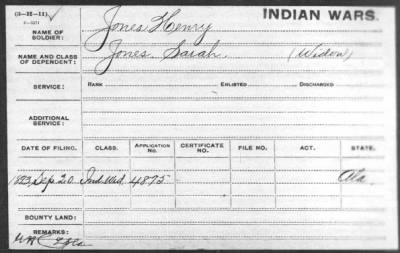 (3-H-11)
INDIAN WARS.
NAME OF SOLDIER: Jones Henry
NAME AND CLASS OF DEPENDENT: Jones Sarah. (Widow)
SERVICE: RANK ENLISTED DISCHARGED
ADDITIONAL SERVICE:
DATE OF FILING. CLASS. APPLICATION No. CERTIFICATE No. FILE NO. ACT. STATE.
Sep 20 Ind Wid 4875 Ala
BOUNTY LAND:
REMARKS: